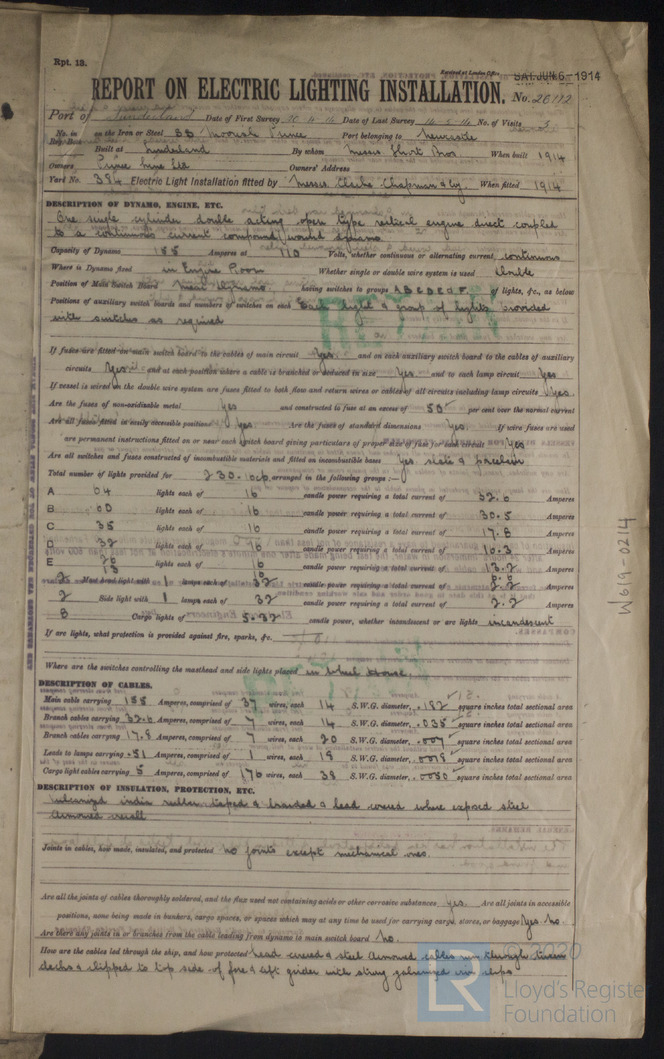 Rpt. 13.
Received at London Office SAT. JUN. 6 - 1914
REPORT ON ELECTRIC LIGHTING INSTALLATION. No. 26112
Port of Sunderland Date of First Survey 20.4.14 Date of Last Survey 14.5.14 No. of Visits
No. in Reg. Book on the Iron or Steel SS Moorish Prince Port belonging to Newcastle
Built at Sunderland By whom Messrs Short Bros When built 1914
Owners Prince Line Ltd Owners' Address
Yard No. 384 Electric Light Installation fitted by Messrs. Clarke Chapman & Co. When fitted 1914
DESCRIPTION OF DYNAMO, ENGINE, ETC.
One single cylinder double acting open type vertical engine direct coupled
to a continuous current compound wound dynamo
Capacity of Dynamo 155 Amperes at 110 Volts, whether continuous or alternating current, continuous
Where is Dynamo fixed in Engine Room Whether single or double wire system is used double
Position of Main Switch Board near Dynamo. having switches to groups A B C D E & F. of lights, &c., as below
Positions of auxiliary switch boards and numbers of switches on each Each light & group of lights provided
with switches as required
If fuses are fitted on main switch board to the cables of main circuit Yes and on each auxiliary switch board to the cables of auxiliary
circuits Yes and at each position where a cable is branched or reduced in size Yes and to each lamp circuit Yes
If vessel is wired on the double wire system are fuses fitted to both flow and return wires or cables of all circuits including lamp circuits Yes.
Are the fuses of non-oxidizable metal Yes and constructed to fuse at an excess of 50 per cent over the normal current
Are all fuses fitted in easily accessible positions Yes Are the fuses of standard dimensions Yes. If wire fuses are used
are permanent instructions fitted on or near each switch board giving particulars of proper size of fuse for each circuit Yes
Are all switches and fuses constructed of incombustible materials and fitted on incombustible bases Yes slate & porcelain
Total number of lights provided for 230. 16cp arranged in the following groups :—
A 64 lights each of 16 candle power requiring a total current of 32.6 Amperes
B 60 lights each of 16 candle power requiring a total current of 30.5 Amperes
C 35 lights each of 16 candle power requiring a total current of 17.8 Amperes
D 32 lights each of 16 candle power requiring a total current of 16.3 Amperes
E 26 lights each of 16 candle power requiring a total current of 13.2 Amperes
13 16 6.6
2 Mast head light with 1 lamps each of 32 candle power requiring a total current of 2.2 Amperes
2 Side light with 1 lamps each of 32 candle power requiring a total current of 2.2 Amperes
8 Cargo lights of 5.32 candle power, whether incandescent or arc lights incandescent
If arc lights, what protection is provided against fire, sparks, &c.
Where are the switches controlling the masthead and side lights placed in Wheel House.
DESCRIPTION OF CABLES.
Main cable carrying 155 Amperes, comprised of 37 wires, each 14 S.W.G. diameter, .182 square inches total sectional area
Branch cables carrying 32.6 Amperes, comprised of 7 wires, each 14 S.W.G. diameter, .035 square inches total sectional area
Branch cables carrying 17.8 Amperes, comprised of 7 wires, each 20 S.W.G. diameter, .007 square inches total sectional area
Leads to lamps carrying .51 Amperes, comprised of 1 wires, each 18 S.W.G. diameter, .0018 square inches total sectional area
Cargo light cables carrying 5 Amperes, comprised of 176 wires, each 38 S.W.G. diameter, .0050 square inches total sectional area
DESCRIPTION OF INSULATION, PROTECTION, ETC.
Vulcanized india rubber taped & braided & lead covered where exposed steel
armoured overall
Joints in cables, how made, insulated, and protected No joints except mechanical ones.
Are all the joints of cables thoroughly soldered, and the flux used not containing acids or other corrosive substances yes. Are all joints in accessible
positions, none being made in bunkers, cargo spaces, or spaces which may at any time be used for carrying cargo, stores, or baggage Yes. No
Are there any joints in or branches from the cable leading from dynamo to main switch board No.
How are the cables led through the ship, and how protected Lead covered & steel armoured cables run through tween
decks & clipped to top side of fore & aft girder with strong galvanized iron clips
W619-0214
© 2020
LR
Lloyd's Register
Foundation